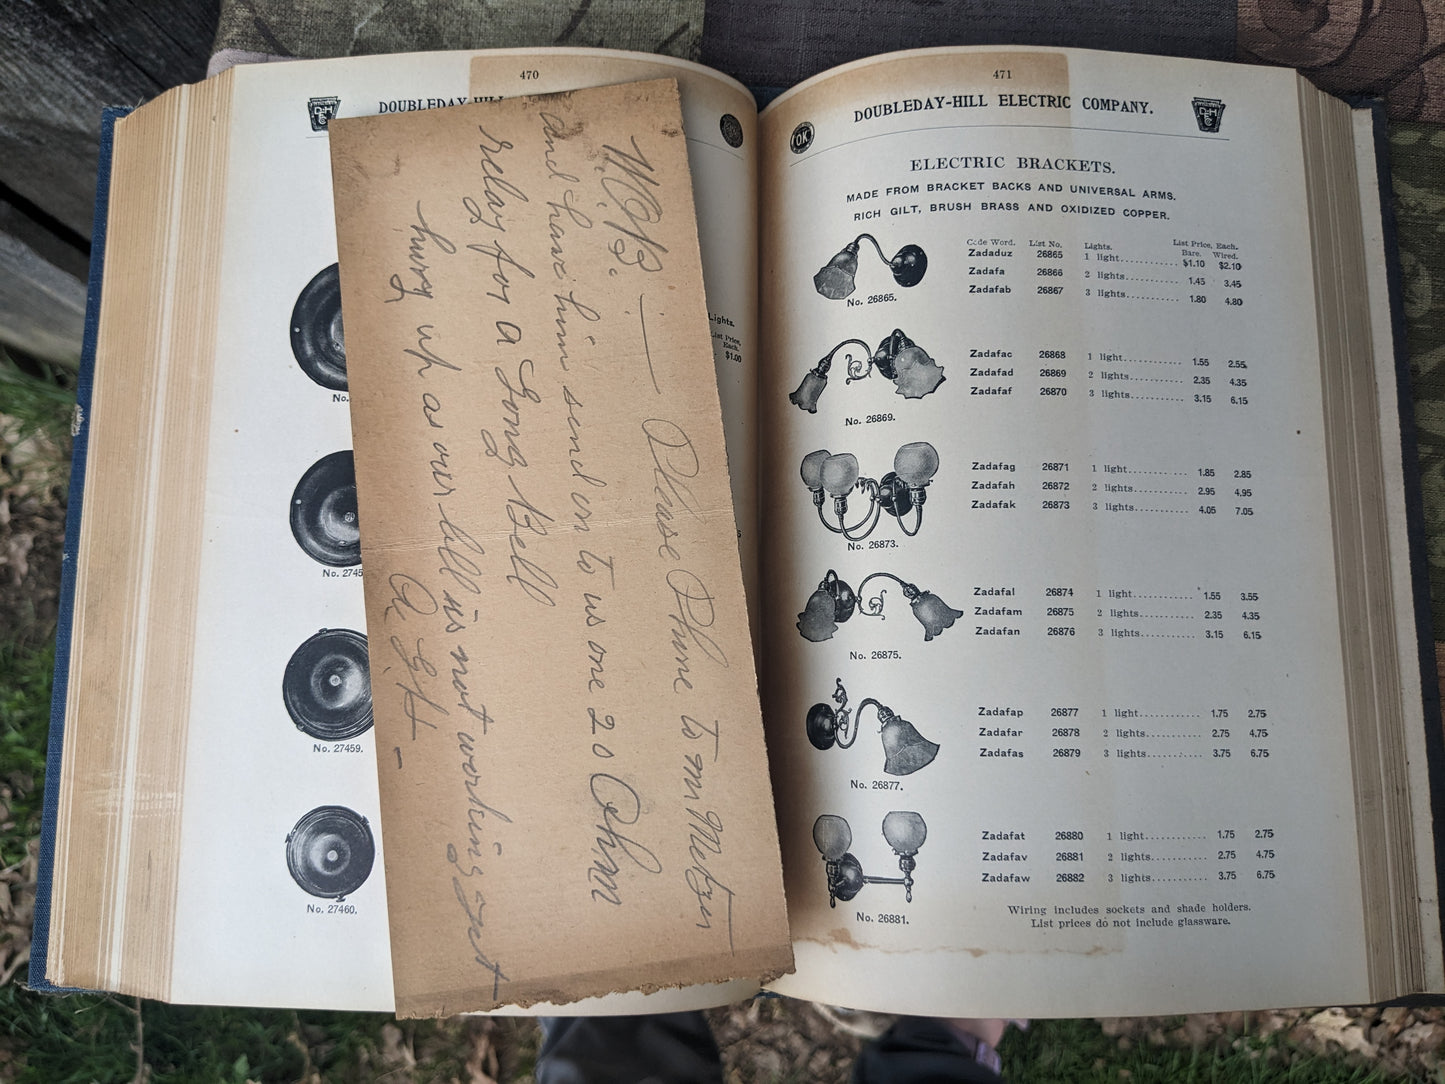 470
DOUBLEDAY-HILL
Lights.
List Price,
Each.
$1.00
No.
No. 2745
No. 27459.
No. 27460.
W.C.B. — Please Phone to mr Metzer
and have him send on to us one 20 Ohm
relay for a Gong Bell
hurry up as our bell is not working just
471
DOUBLEDAY-HILL ELECTRIC COMPANY.
O.K.
ELECTRIC BRACKETS.
MADE FROM BRACKET BACKS AND UNIVERSAL ARMS.
RICH GILT, BRUSH BRASS AND OXIDIZED COPPER.
Code Word. List No. Lights. List Price, Each.
Bare. Wired.
Zadaduz 26865 1 light........... $1.10 $2.10
Zadafa 26866 2 lights.......... 1.45 3.45
Zadafab 26867 3 lights.......... 1.80 4.80
No. 26865.
Zadafac 26868 1 light............ 1.55 2.55
Zadafad 26869 2 lights.......... 2.35 4.35
Zadafaf 26870 3 lights.......... 3.15 6.15
No. 26869.
Zadafag 26871 1 light............ 1.85 2.85
Zadafah 26872 2 lights.......... 2.95 4.95
Zadafak 26873 3 lights.......... 4.05 7.05
No. 26873.
Zadafal 26874 1 light............ 1.55 3.55
Zadafam 26875 2 lights.......... 2.35 4.35
Zadafan 26876 3 lights.......... 3.15 6.15
No. 26875.
Zadafap 26877 1 light............ 1.75 2.75
Zadafar 26878 2 lights.......... 2.75 4.75
Zadafas 26879 3 lights.......... 3.75 6.75
No. 26877.
Zadafat 26880 1 light............ 1.75 2.75
Zadafav 26881 2 lights.......... 2.75 4.75
Zadafaw 26882 3 lights.......... 3.75 6.75
No. 26881.
Wiring includes sockets and shade holders.
List prices do not include glassware.